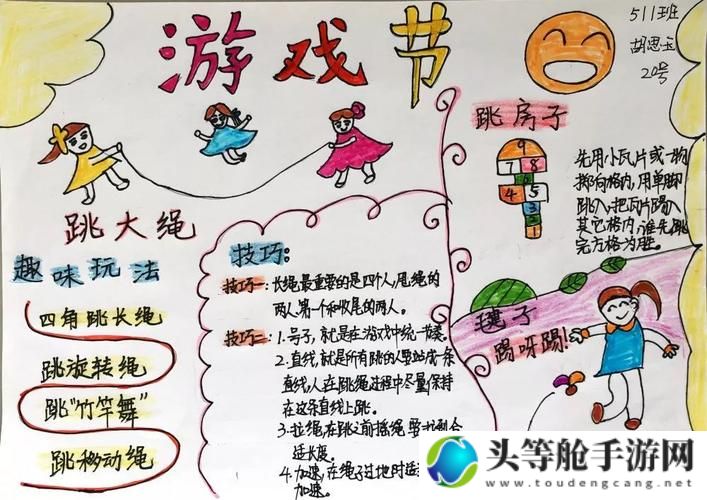 游戏节
511班
胡思玉
20号
跳大绳
趣味玩法
四角跳长绳
跳旋转绳
跳"竹竿舞"
跳移动绳
技巧:
技巧一:长绳最重要的是四个人,甩绳的
两人,第一个和收尾的两人。
技巧二:1.号子,就是在游戏中统一节奏。
2.直线,就是所有跳的人要站成一条
直线,人在跳绳过程中尽量保持
在这条直线上跳。
3.拉绳,在跳之前摇绳
4.加速,在绳子过地时
加速。
跳房子
9
7 8
6
4 5
3
2
1
先用小瓦片或一物
掷向格内,用单脚
跳入,把瓦片踢入
其它格内,谁先跳
完方格为胜。
毽子
踢呀踢!
头等舱手游网
www.toudengcang.net